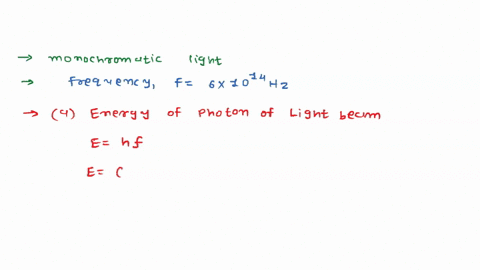 → monochromatic light
→ frequency, f = 6 × 10¹⁴ Hz
→ (a) Energy of Photon of Light beam
E = hf
E = (